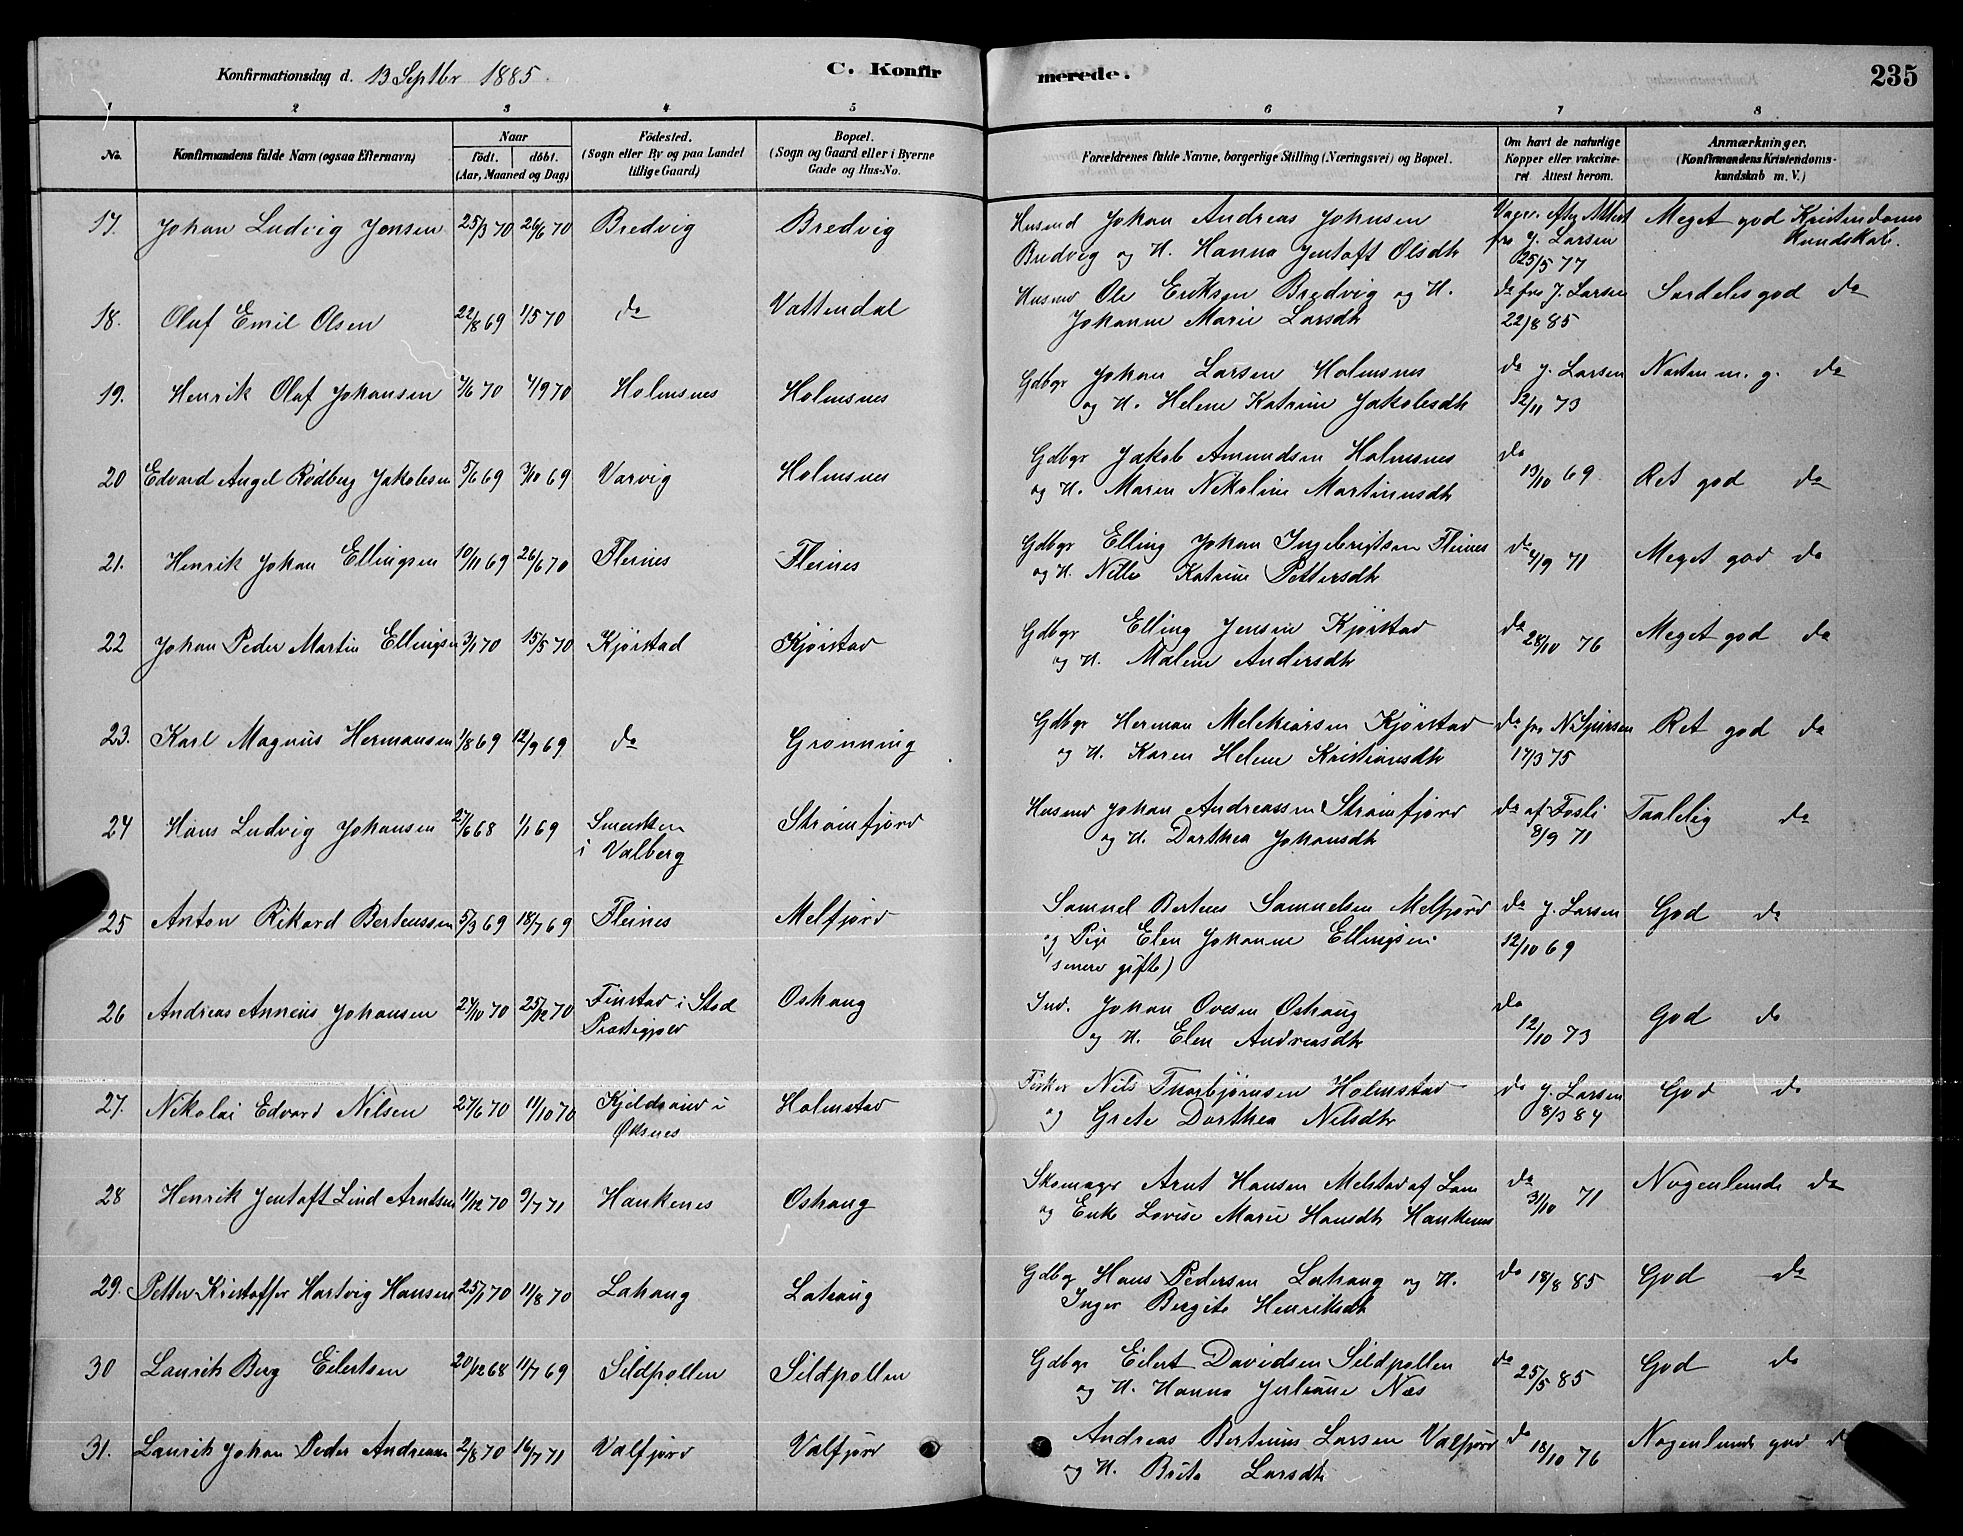 Konfirmationsdag d. 13 Septbr 1885. C. Konfirmerede. 235
1 2 3 4 5 6 7 8
No. Konfirmandens fulde Navn (ogsaa Efternavn) Naar födt. döbt. (Aar, Maaned og Dag) Födested. (Sogn eller By og paa Landet tillige Gaard) Bopæl. (Sogn og Gaard eller i Byerne Gade og Hus-No. Forældrenes fulde Navne, borgerlige Stilling (Næringsvei) og Bopæl. Om havt de naturlige Kopper eller vakcineret Attest herom. Anmærkninger. (Konfirmandens Kristendomskundskab m. V.)
17. Johan Ludvig Jensen 25/3 70 26/6 70 Bredvig Bredvig Husmd Johan Andreas Johnsen Attest Meget god Kristendoms
Bredvig og H. Hanna Jentoft Olsdtr fra J. Larsen Kundskab.
25/5 77
18. Olaf Emil Olsen 22/8 69 1/5 70 do Vattendal Husmd Ole Eriksen Bredvig og H. do fra J. Larsen Særdeles god do
Johanne Marie Larsdtr 22/8 85
19. Henrik Olaf Johansen 7/6 70 4/9 70 Holmsnes Holmsnes Gdbgr Johan Larsen Holmsnes do J. Larsen Næsten m. g. do
og H. Helene Katrine Jakobsdtr 12/11 73
20 Edvard Angel Rødberg Jakobsen 5/6 69 3/10 69 Varvig Holmsnes Gdbgr Jakob Amundsen Holmsnes do
og H. Maren Nikoline Martinusdtr 13/10 69 Ret god do
21. Henrik Johan Ellingsen 10/11 69 26/6 70 Fleines Fleines Gdbgr Elling Johan Ingebrigtsen Fleines do 4/9 71 Meget god do
og H. Nille Katrine Pettersdtr
22 Johan Peder Martin Ellingsen 3/1 70 15/5 70 Kjørstad Kjørstad Gdbgr Elling Jensen Kjørstad do 28/10 76 Meget god do
og H. Malene Andersdtr
23. Karl Magnus Hermansen 1/8 69 12/9 69 do Grønning Gdbgr Herman Melkiorsen Kjørstad do fra N Ret god do
og H. Karen Helene Kristiansdtr 17/3 75
24 Hans Ludvig Johansen 27/6 68 1/1 69 Smedsken Strømfjord Husmd Johan Andreassen Strømfjord do af Fosli Taalelig do
i Valberg og H. Dorthea Johansdtr 8/9 71
25 Anton Rikard Berteussen 5/3 69 18/7 69 Fleines Melfjord Samuel Berteus Samuelsen Melfjord do J. Larsen God do
og Pige Elen Johanne Ellingsen 12/10 69
(senere gifte)
26 Andreas Anneus Johansen 24/10 70 25/12 70 Finstad i Stod Oshaug Ind. Johan Ovesen Oshaug do 12/10 73 God do
Præstegjeld og H. Elen Andreasdtr
27. Nikolai Edvard Nilsen 27/6 70 11/10 70 Kjeldsand i Holmstad Fisker Nils Thorbjørnsen Holmstad do J. Larsen God do
Øksnes og Grete Dorthea Nilsdtr 8/3 84
28 Henrik Jentoft Lind Arntsen 11/12 70 9/7 71 Haukenes Oshaug Skomagr Arnt Hansen Melstad af Lem do 31/10 71 Nogenlunde do
og Enke Lovise Marie Hansdtr Haukenes
29. Petter Kristoffer Hartvig Hansen 25/1 70 11/8 70 Lahaug Lahaug Gdbgr Hans Pedersen Lahaug og H. do 18/8 85 God do
Inger Bergite Henriksdtr
30 Laurits Berg Eilertsen 20/12 68 11/7 69 Sildpollen Sildpollen Gdbgr Eilert Davidsen Sildpollen do 25/5 85 God do
og H. Hanna Juliane Næs
31. Laurits Johan Peder Andreasen 2/8 70 16/7 71 Valfjord Valfjord Andreas Berteus Larsen Valfjord do 18/10 76 Nogenlunde god do
og H. Brita Larsdtr